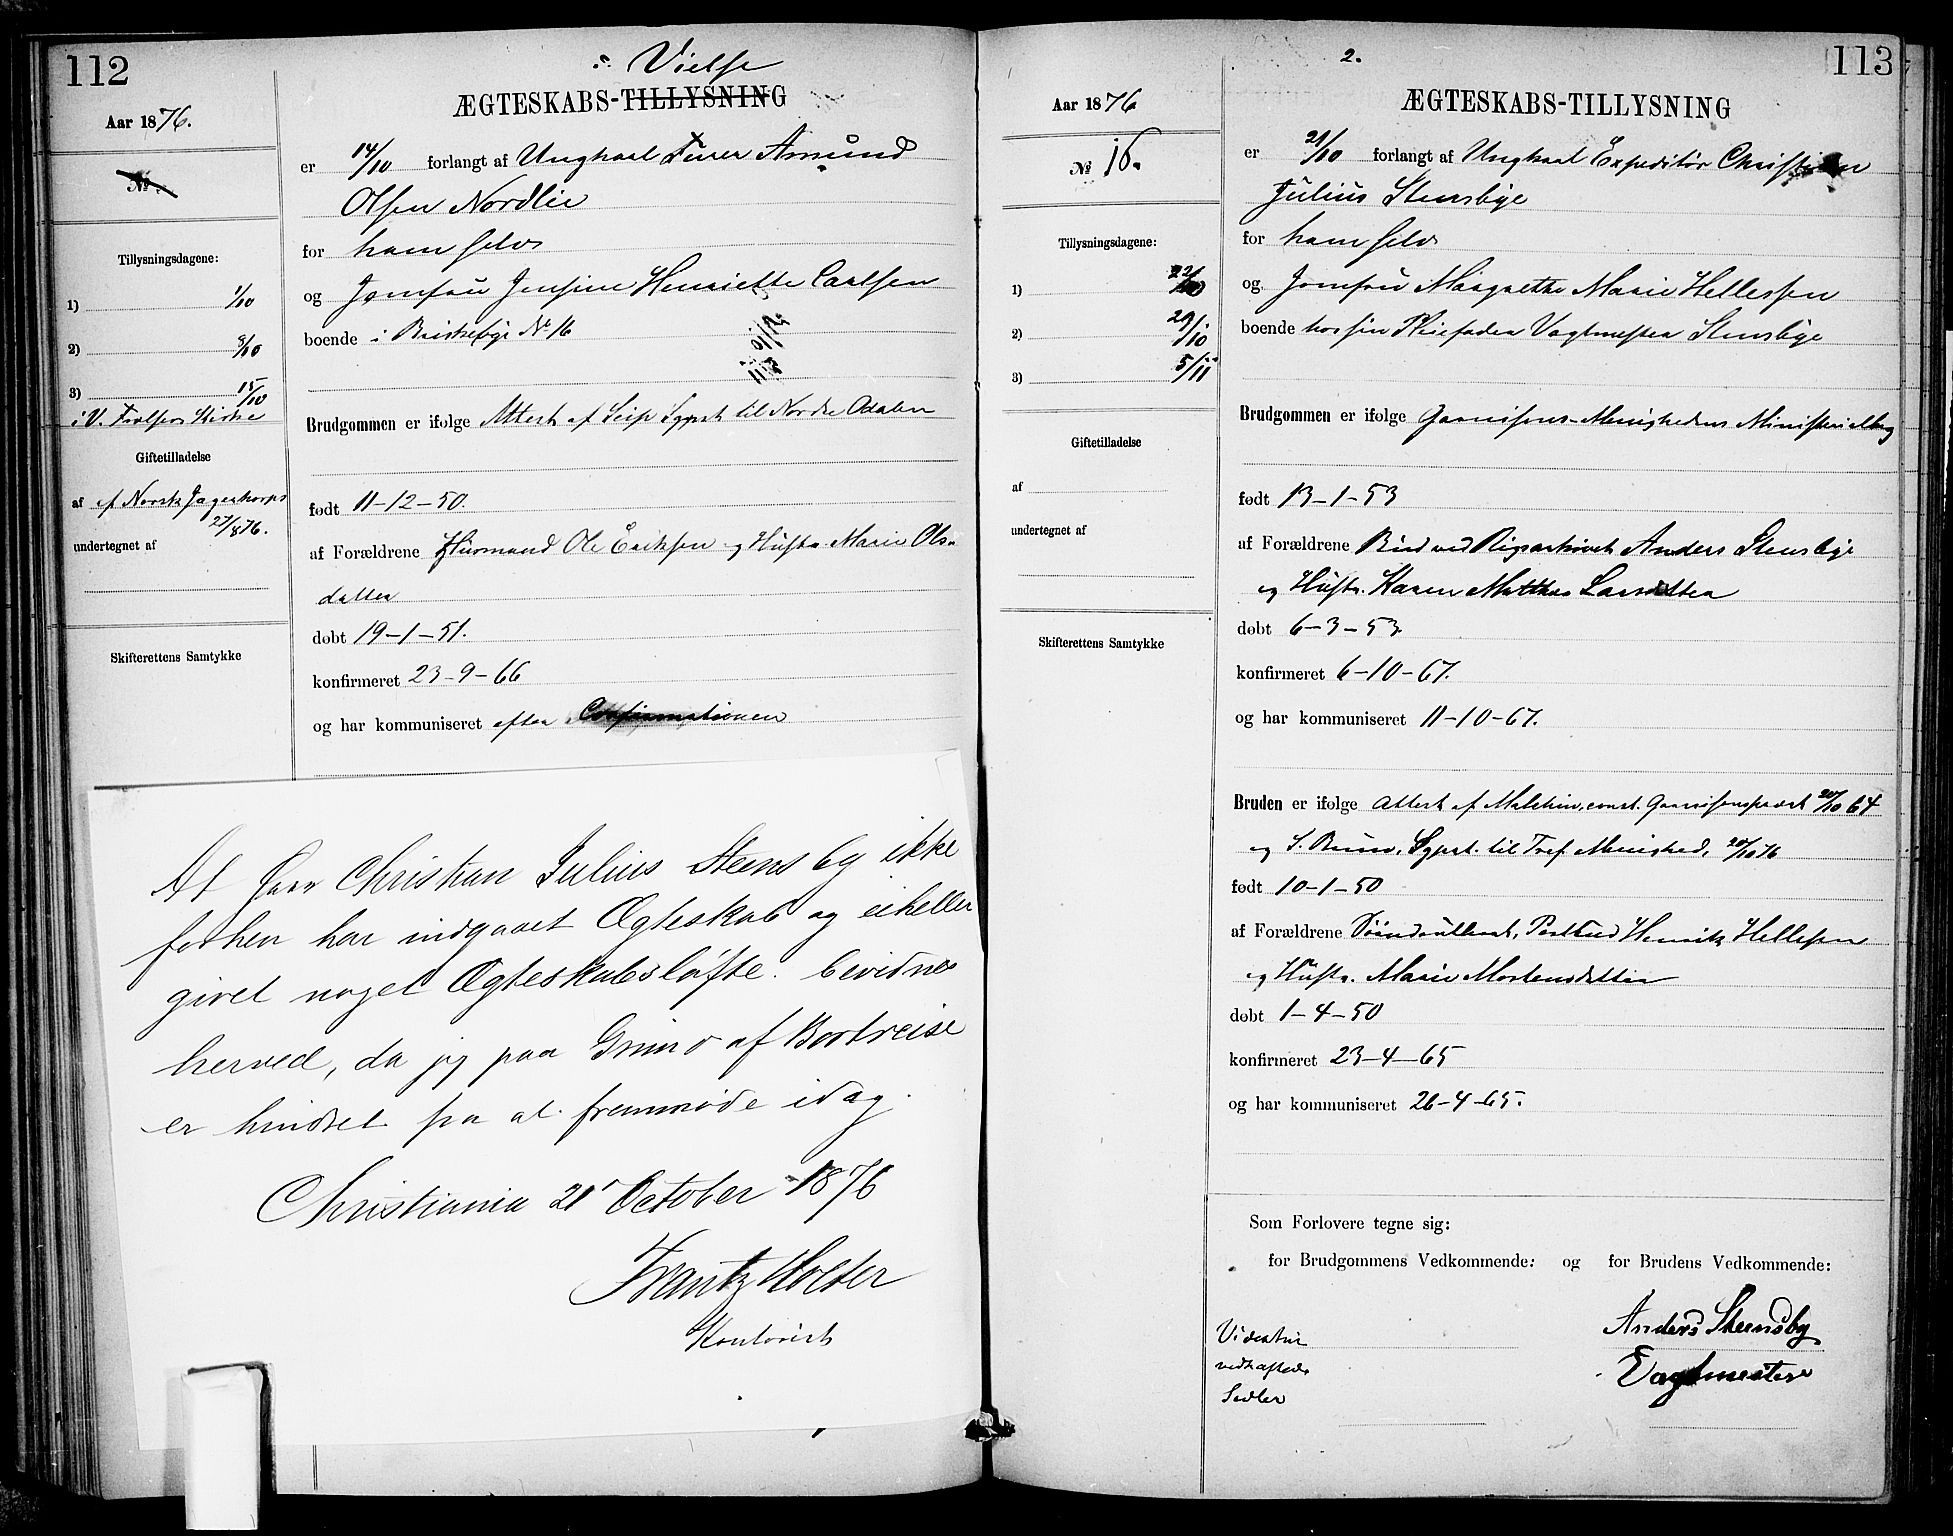 112
Vielse
ÆGTESKABS-TILLYSNING
Aar 1876.
No
Tillysningsdagene:
1) 1/10
2) 8/10
3) 15/10
i V. Kirke
Giftetilladelse
af af Norsk Jægerkorps
27/8 76.
undertegnet af
Skifterettens Samtykke
er 14/10 forlangt af Ungkarl Amund
Olsen Nordlie
for ham selv
og Jomfru Jensine Henriette Carlsen
boende i Briskebye No 16
Brudgommen er ifølge Attest af Seip Sgprst til Nordre Odalen
født 11-12-50.
af Forældrene Huusmand Ole Eriksen og Hustr. Marie Ols-
datter
døbt 19-1-51.
konfirmeret 23-9-66
og har kommuniseret efter Confirmationen
At Herr Christian Julius Steensby ikke
forhen har indgaaet Ægteskab og eiheller
givet noget Ægteskabsløfte bevidnes
herved, da jeg paa Grund af Bortreise
er hindret fra at fremmøde idag.
Christiania 21 October 1876
Frantz Holter
Kontorist
2.
113
ÆGTESKABS-TILLYSNING
Aar 1876
No 16.
Tillysningsdagene:
1) 22/10
2) 29/10
3) 5/11
Giftetilladelse
af
undertegnet af
Skifterettens Samtykke
er 21/10 forlangt af Ungkarl Expeditør Christian
Julius Stensbye
for ham selv
og Jomfru Margrethe Marie Hellesen
boende hos sin Pleiefader Vagtmester Stensbye
Brudgommen er ifølge Garnisons-Menighedens Ministerialbog
født 13-1-53
af Forældrene Bud ved Rigsarkivet Anders Stensbye
og Hustr. Karen Mathea Larsdatter
døbt 6-3-53
konfirmeret 6-10-67.
og har kommuniseret 11-10-67.
Bruden er ifølge Attest af const. Garnisonsprest 20/10 64
og S. Bruun, Sgprst. til Tref. Menighed, 20/10 76
født 10-1-50
af Forældrene Postbud Henrik Hellesen
og Hustr. Marie Mortensdatter
døbt 1-4-50
konfirmeret 23-4-65
og har kommuniseret 26-4-65.
Som Forlovere tegne sig:
for Brudgommens Vedkommende: og for Brudens Vedkommende:
Videatur
vedhæftede
Sedler
Anders Steensby
Vagtmester